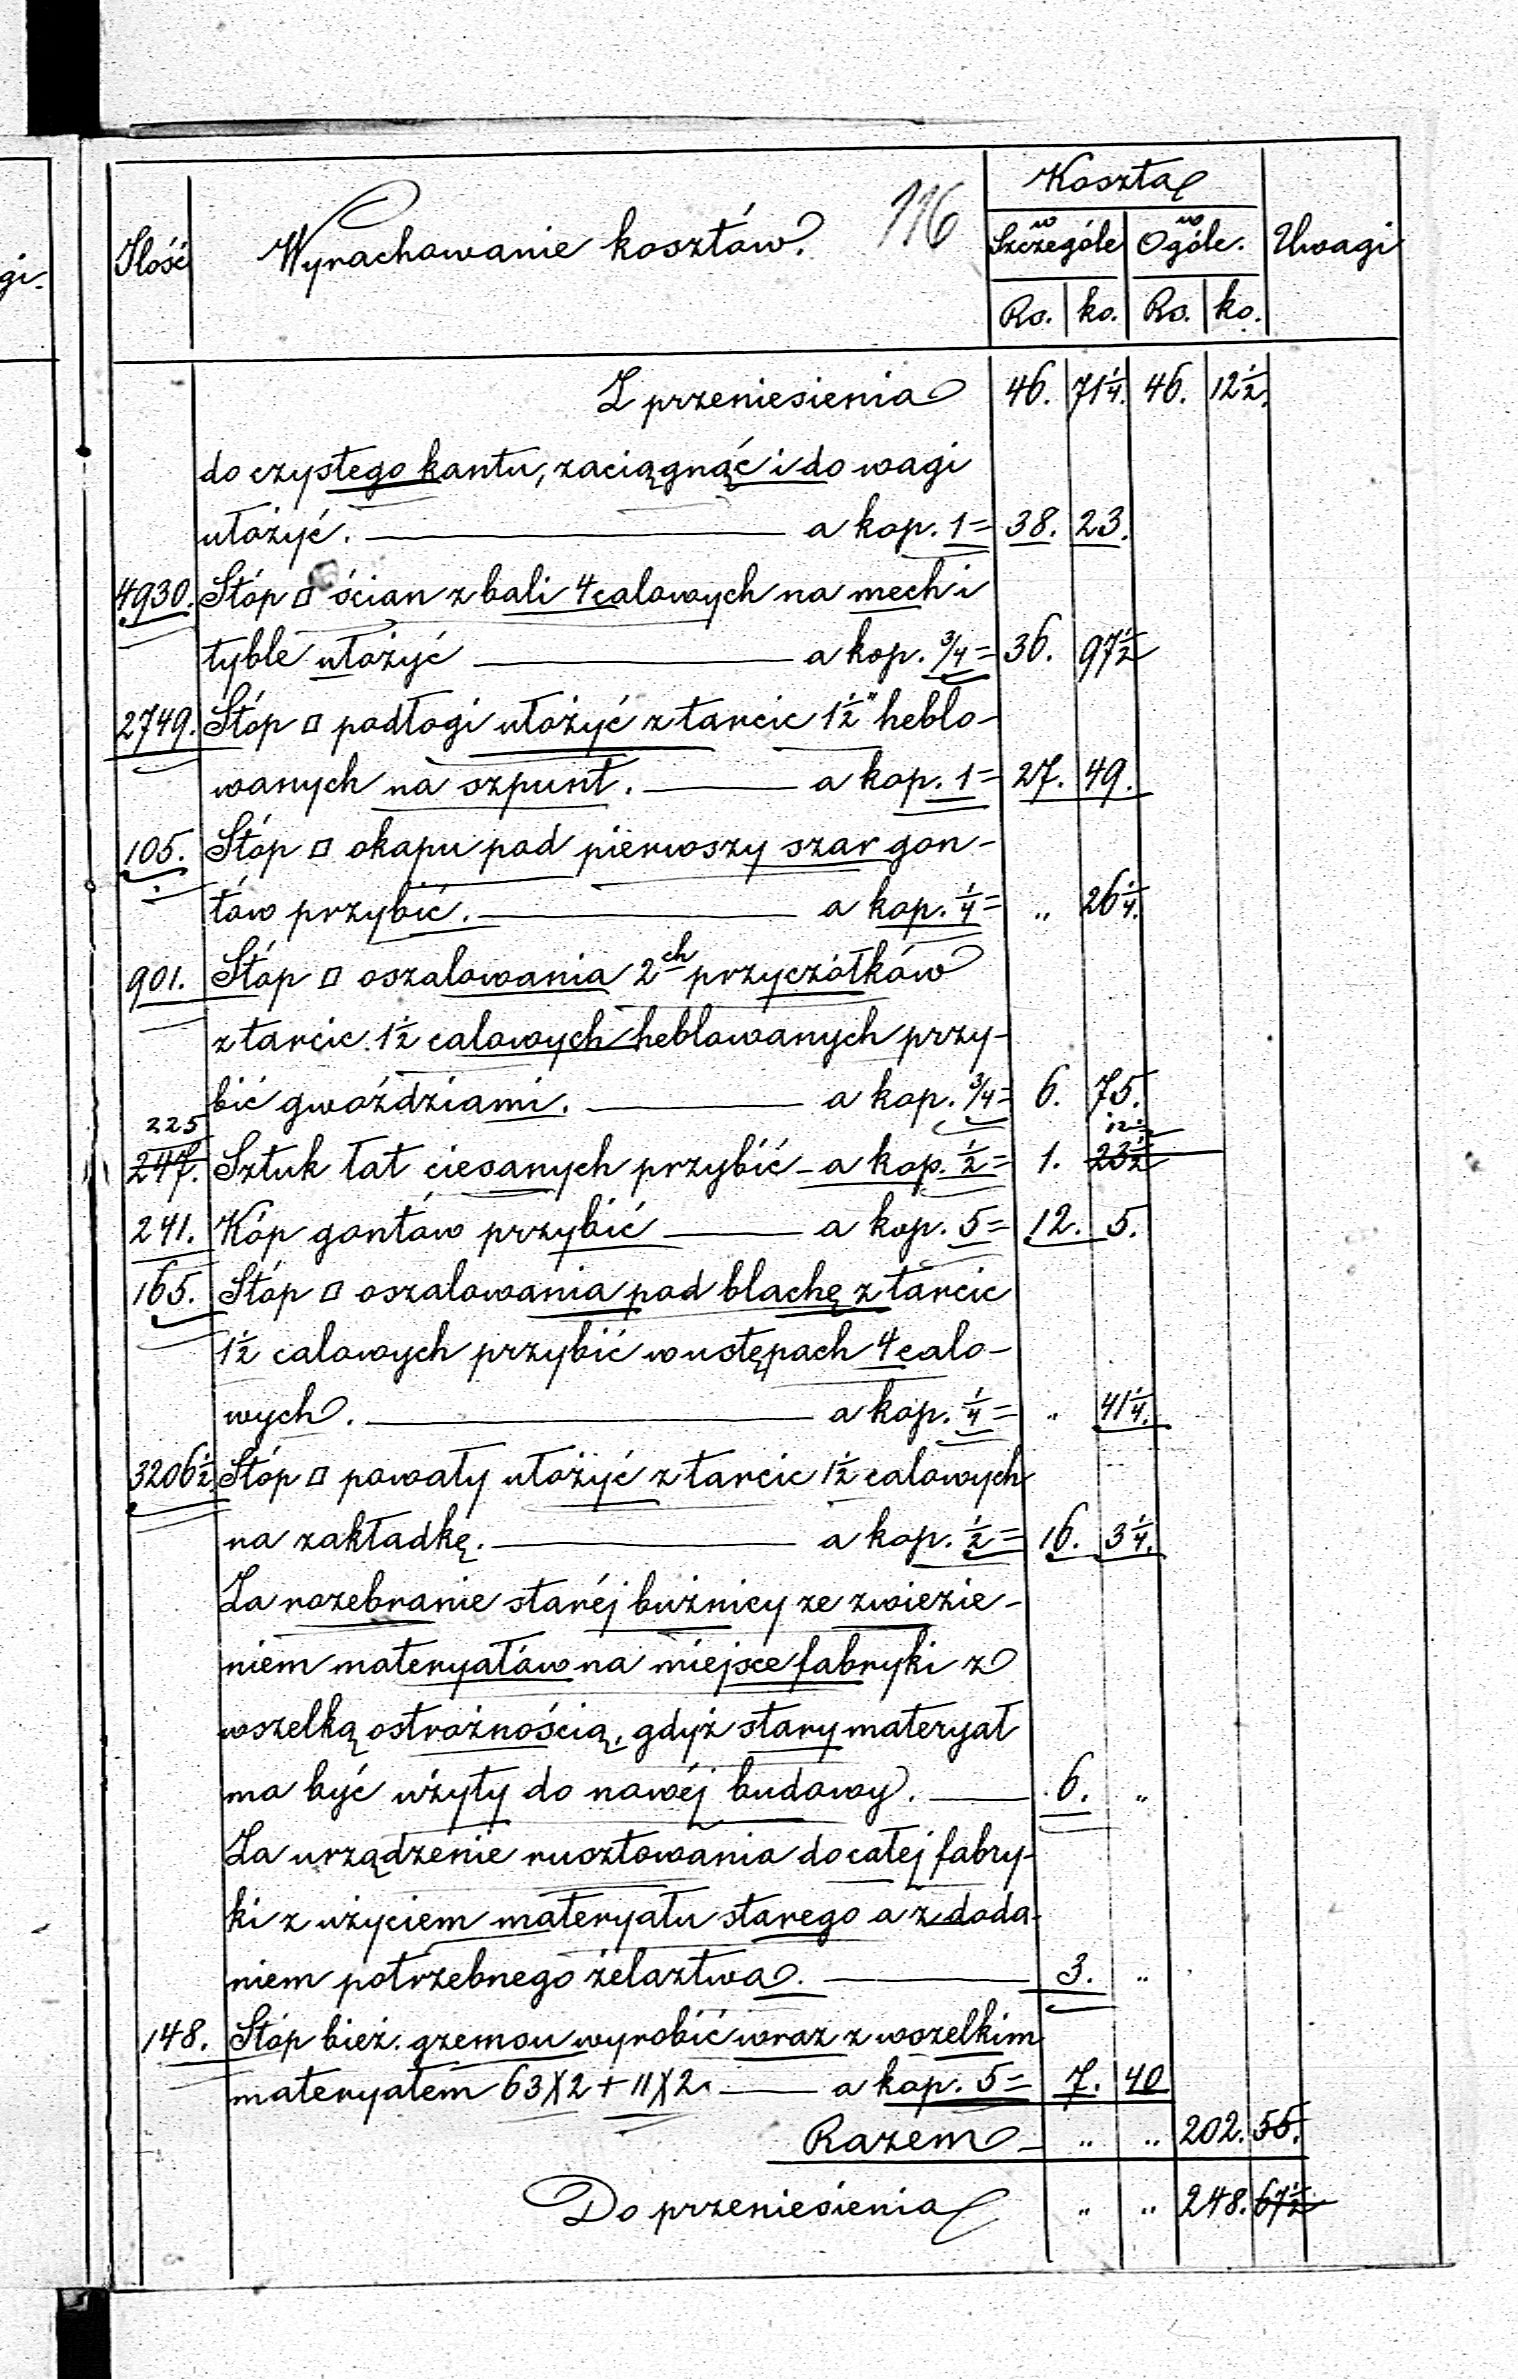 gi.
116
Koszta
Ilość Wyrachowanie kosztów. w Szczególe w Ogóle. Uwagi
Rs. ko. Rs. ko.
Z przeniesienia 46. 71 1/4. 46. 12 1/2.
do czystego kantu, zaciągnąć i do wagi
ułożyć. a kop. 1 = 38. 23.
4930. Stóp □ ścian z bali 4 calowych na mech i
tyble ułożyć a kop. 3/4 = 36. 97 1/2
2749. Stóp □ podłogi ułożyć z tarcic 1 1/2" heblo-
wanych na szpunt. a kop. 1 = 27. 49.
105. Stóp □ okapu pod pierwszy szar gon-
tów przybić. a kop. 1/4 = " 26 1/4.
901. Stóp □ oszalowania 2ch przyczółków
z tarcic 1 1/2 calowych heblowanych przy-
bić gwoździami. a kop. 3/4 = 6. 75.
225 12 1/2
247. Sztuk łat ciesanych przybić - a kop. 1/2 = 1. 23 1/2
241. Kóp gontów przybić a kop. 5 = 12. 5.
165. Stóp □ oszalowania pod blachę z tarcic
1 1/2 calowych przybić w ustępach 4 calo-
wych. a kop. 1/4 = " 41 1/4.
3206 1/2 Stóp □ powały ułożyć z tarcic 1 1/2 calowych
na zakładkę. a kop. 1/2 = 16. 3 1/4.
Za rozebranie staréj bużnicy ze zwiezie-
niem materyałów na miejsce fabryki z
wszelką ostrożnością, gdyż stary materyał
ma być użyty do nowéj budowy. 6. "
Za urządzenie rusztowania do całej fabry-
ki z użyciem materyału starego a z doda-
niem potrzebnego żelaztwa. 3. "
148. Stóp bież. gzemsu wyrobić wraz z wszelkim
materyałem 63X2 + 11X2. a kop. 5 = 7. 40
Razem - " " 202. 55.
Do przeniesienia " " 248. 67 1/2